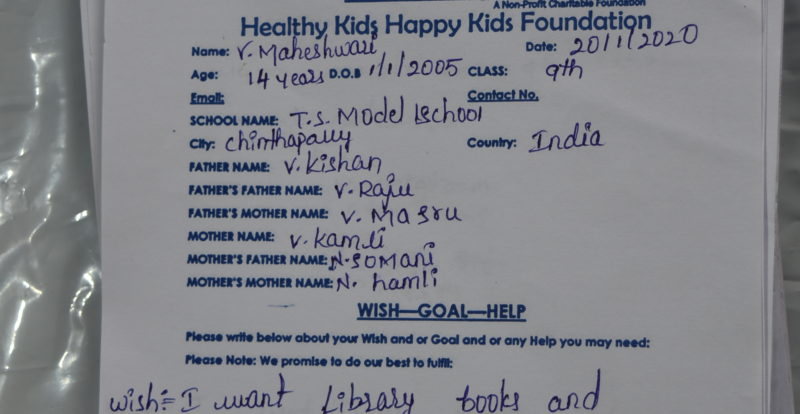 A Non-Profit Charitable Foundation
Healthy Kids Happy Kids Foundation
Name: V. Maheshwari Date: 20/1/2020
Age: 14 years D.O.B 1/1/2005 CLASS: 9th
Email: Contact No.
SCHOOL NAME: T.S. Model school
City: chinthapally Country: India
FATHER NAME: V. Kishan
FATHER'S FATHER NAME: V. Raju
FATHER'S MOTHER NAME: V. Masru
MOTHER NAME: V. Kamli
MOTHER'S FATHER NAME: N. Somani
MOTHER'S MOTHER NAME: N. hamli
WISH—GOAL—HELP
Please write below about your Wish and or Goal and or any Help you may need:
Please Note: We promise to do our best to fulfil:
wish:= I want Library books and